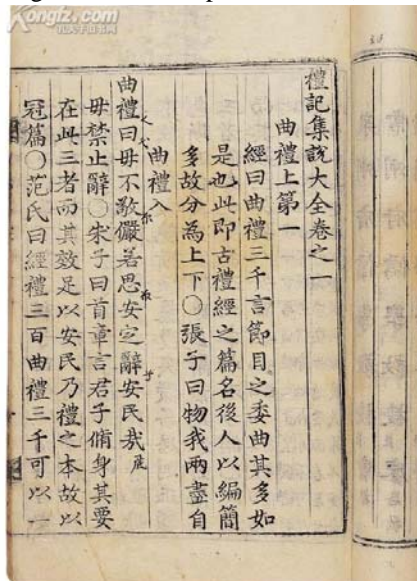 Kongfz.com
孔夫子旧书网
禮記集說大全卷之一
曲禮上第一
經曰曲禮三千言節目之委曲其多如
是也此即古禮經之篇名後人以編簡
多故分為上下○張子曰物我兩盡自
曲禮入
曲禮曰毋不敬儼若思安定辭安民哉
毋禁止辭○朱子曰首章言君子脩身其要
在此三者而其效足以安民乃禮之本故以
冠篇○范氏曰經禮三百曲禮三千可以一